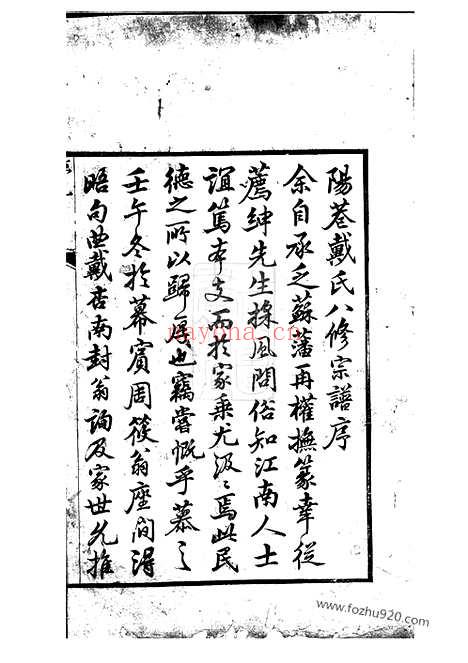 陽巷戴氏八修宗譜序
余自承乏蘇藩再權撫篆幸從
薦紳先生採風問俗知江南人士
誼篤本支而於家乘尤汲〻焉此民
德之所以歸厚也竊嘗慨乎慕之
壬午冬於幕賓周筱翁座間得
晤句曲戴杏南封翁詢及家世允推
nayona.cn
www.fozhu920.com